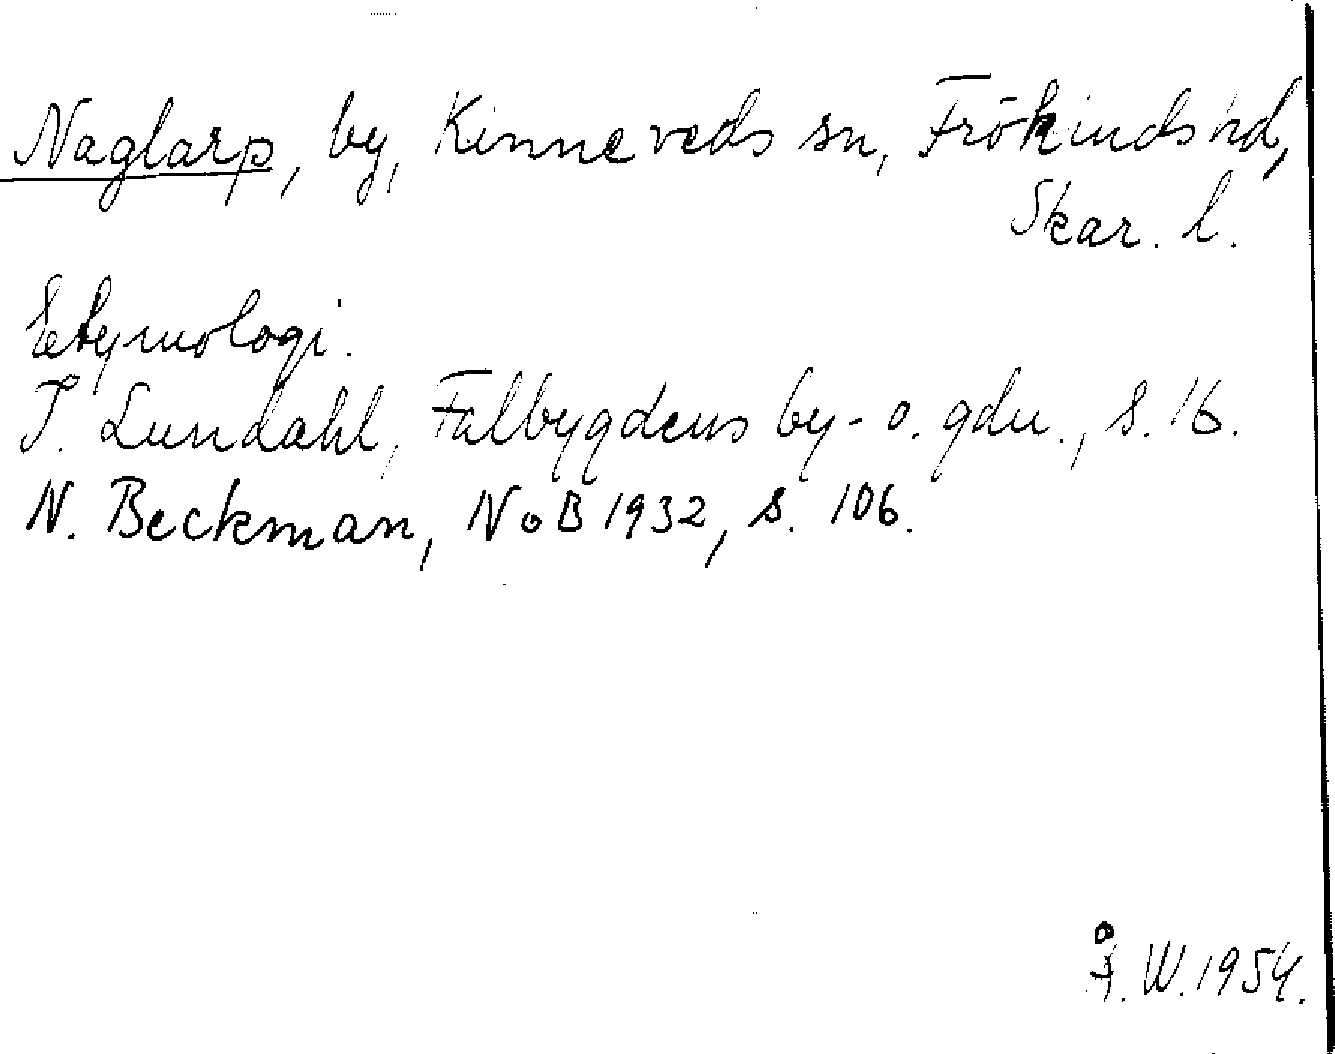 Naglarp, by, Kinneveds sn, Frökinds hd,
Skar. l.
Etymologi.
I. Lundahl, Falbygdens by- o. gdn., s. 16.
N. Beckman, NoB 1932, s. 106.
Å. W. 1954.